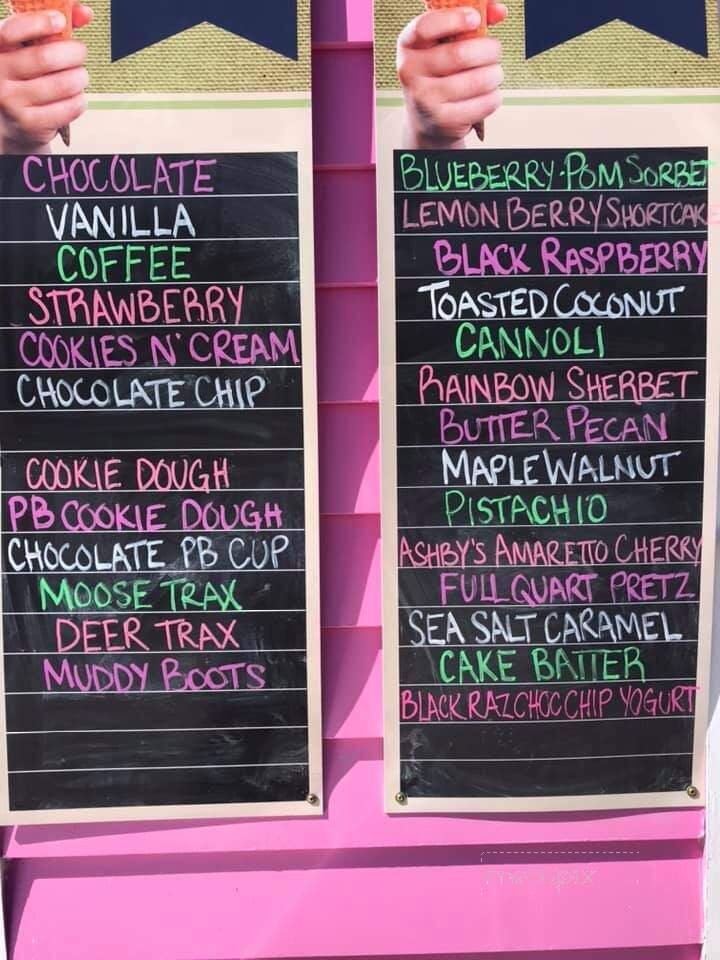 CHOCOLATE
VANILLA
COFFEE
STRAWBERRY
COOKIES N' CREAM
CHOCOLATE CHIP
COOKIE DOUGH
PB COOKIE DOUGH
CHOCOLATE PB CUP
MOOSE TRAX
DEER TRAX
MUDDY BOOTS
BLUEBERRY-POM SORBET
LEMON BERRY SHORTCAKE
BLACK RASPBERRY
TOASTED COCONUT
CANNOLI
RAINBOW SHERBET
BUTTER PECAN
MAPLE WALNUT
PISTACHIO
ASHBY'S AMARETO CHERRY
FULL QUART PRETZ
SEA SALT CARAMEL
CAKE BATTER
BLACK RAZ CHOC CHIP YOGURT